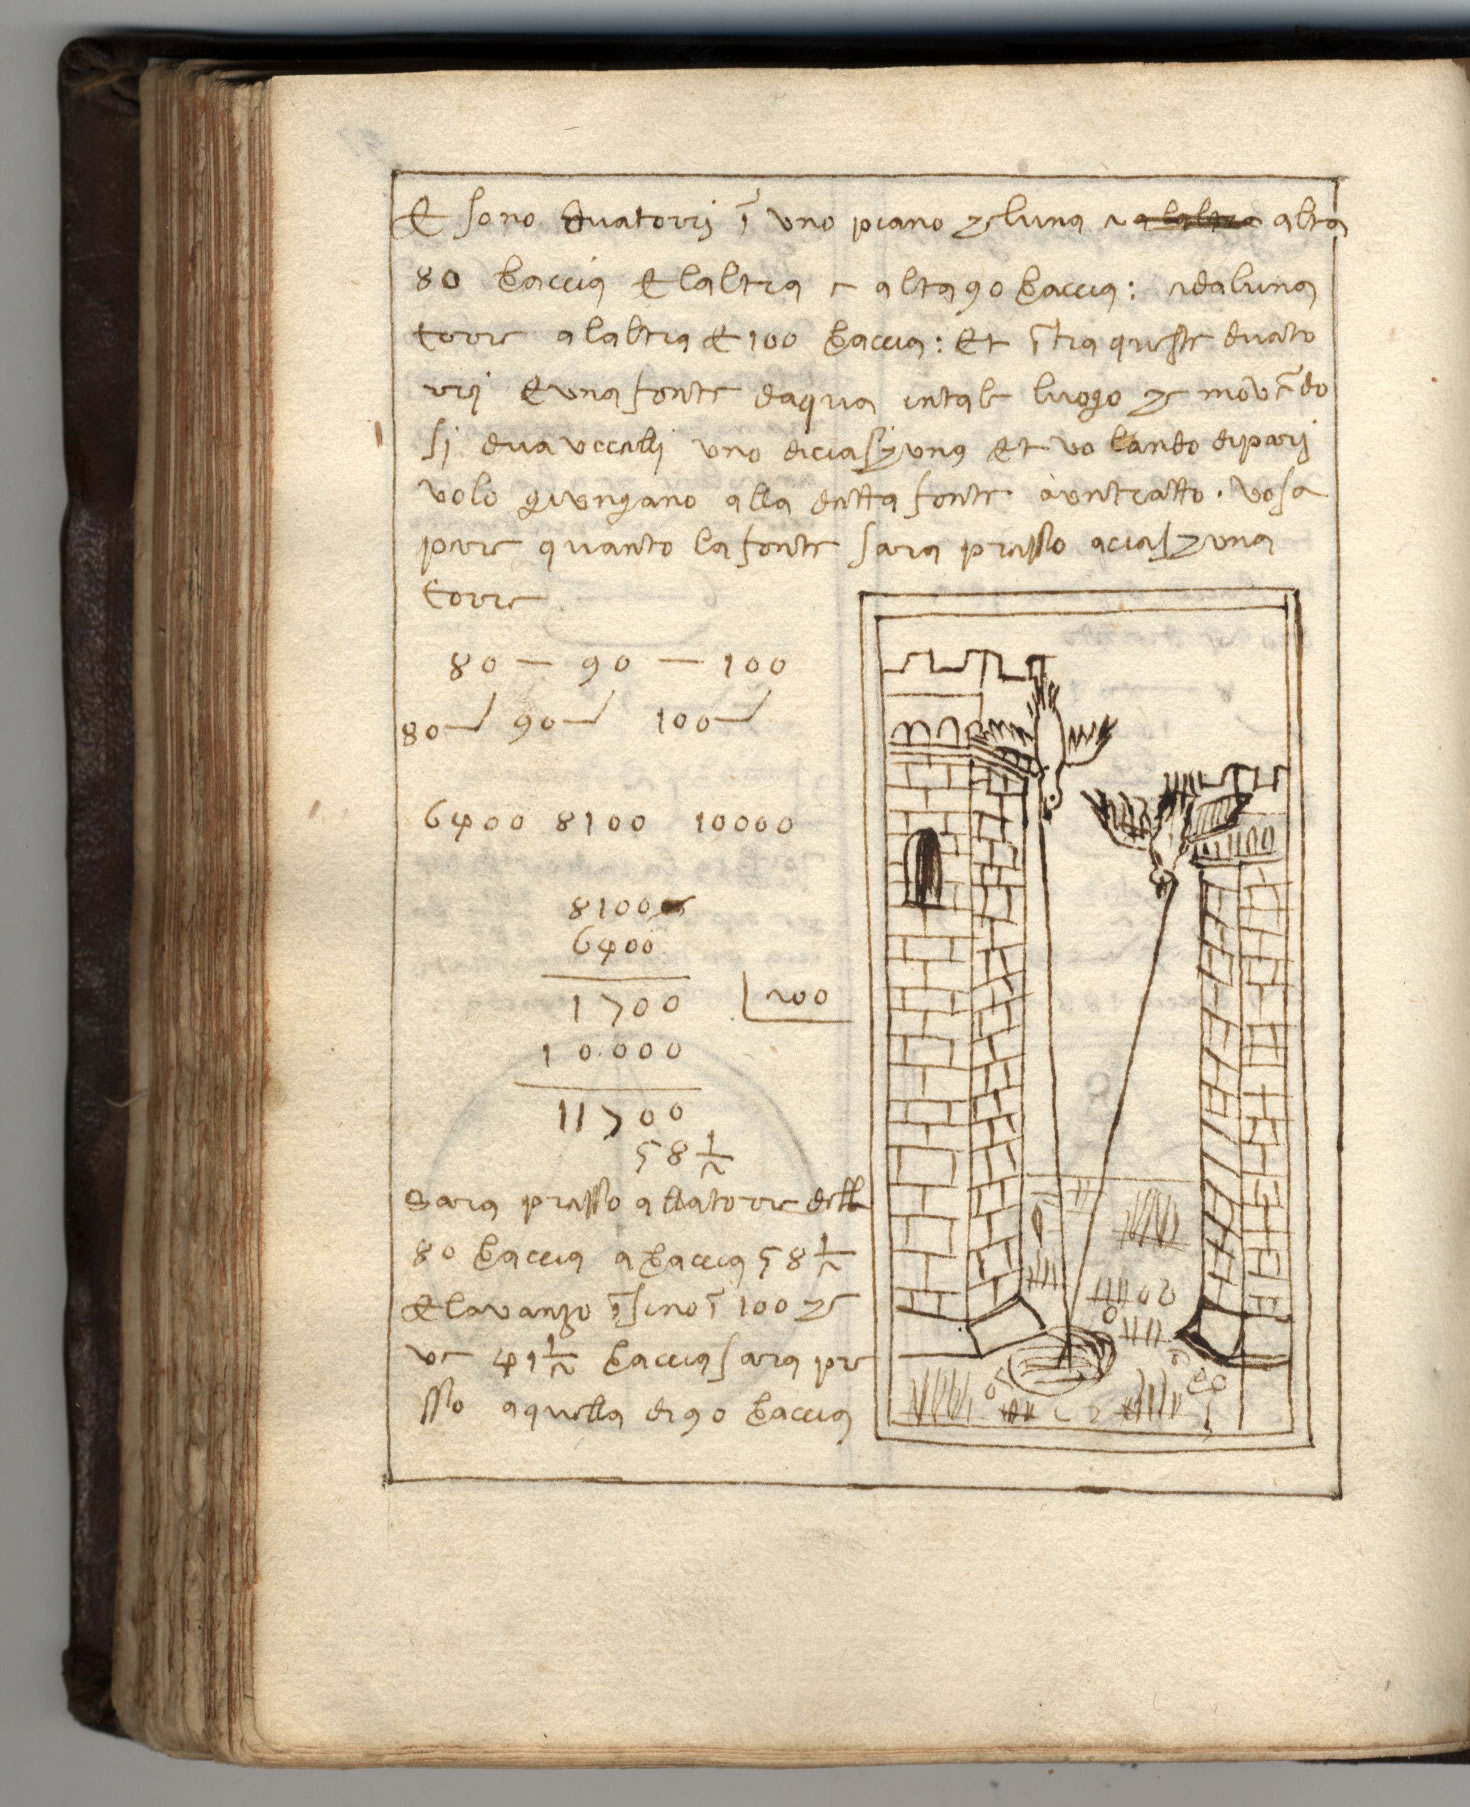 Et sono duatorri ĩ uno piano che luna alta
80 braccia et laltra e alta 90 braccia: edaluna
torre alaltra et 100 braccia: Et ĩtra queste duato
rri et una fonte daqua intale luogo che movẽdo
si dua uccelli uno diciaschuna et volando dipari
volo giungano alla detta fonte auntratto. Vosa
pere quanto lafonte sara presso aciaschuna
torre
80 — 90 — 100
80 90 100
6400 8100 10000
8100
6400
1700 200
10000
11700
58 1/2
Sara presso allatorre delle
80 braccia abraccia 58 1/2
et lavanzo ĩsino ĩ 100 che
ve 41 1/2 braccia sara pre
sso aquella di 90 braccia